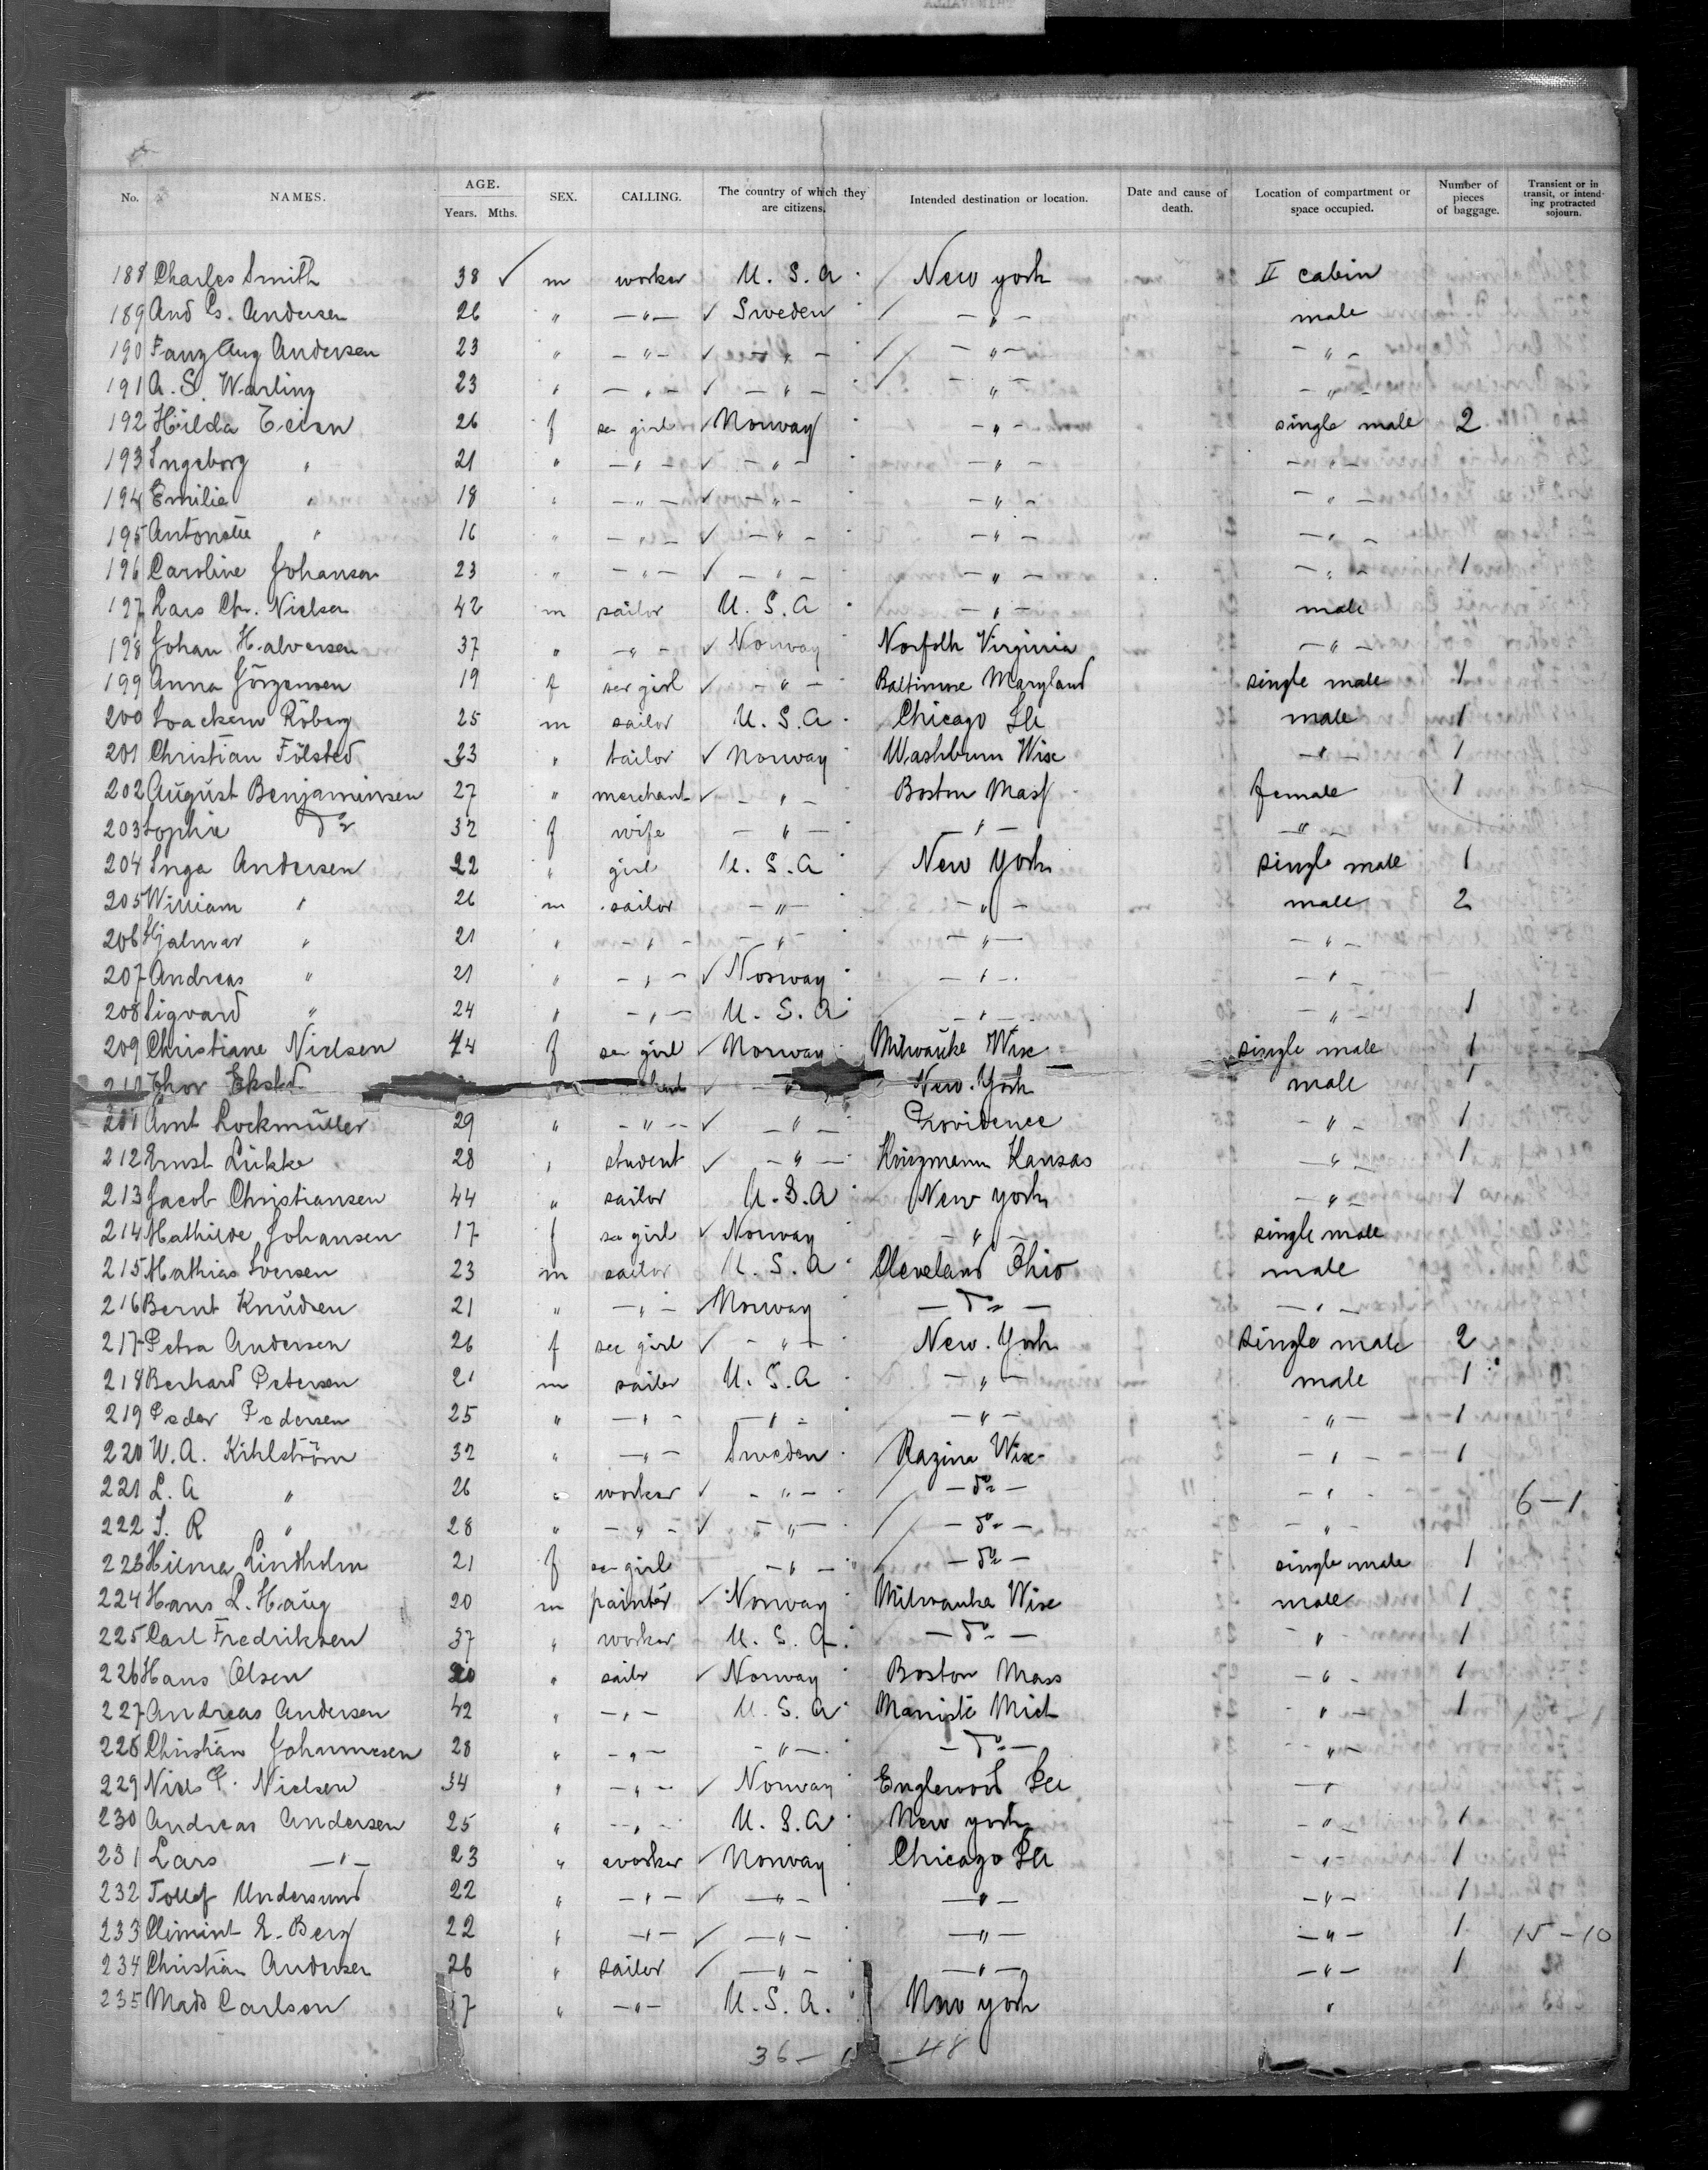 No. NAMES. AGE. Years. Mths. SEX. CALLING. The country of which they are citizens. Intended destination or location. Date and cause of death. Location of compartment or space occupied. Number of pieces of baggage. Transient or in transit, or intending protracted sojourn.
188 Charles Smith 38 ✓ m worker U. S. A New york II cabin
189 And Es. Andersen 26 " —"— ✓ Sweden / —"— male
190 Fanz Aug Andersen 23 " —"— ✓ —"— / —"— —"—
191 A. S. Warling 23 " —"— ✓ —"— / —"— —"—
192 Hilda Teien 26 f se girl ✓ Norway —"— single male 2
193 Ingeborg " 21 " —"— ✓ —"— —"— —"—
194 Emilie " 18 " —"— ✓ —"— —"— —"—
195 Antonette " 16 " —"— ✓ —"— —"— —"—
196 Caroline Johansen 23 " —"— ✓ —"— —"— —"— 1
197 Lars Chr. Nielsen 42 m sailor U. S. A —"— male
198 Johan Halversen 37 " —"— ✓ Norway Norfolk Virginia —"—
199 Anna Jörgensen 19 f ser girl ✓ —"— Baltimore Maryland single male 1
200 Röberg 25 m sailor U. S. A Chicago Ill male 1
201 Christian Fölsted 23 " tailor ✓ Norway Washburn Wisc —"— 1
202 August Benjaminsen 27 " merchant ✓ —"— Boston Mass female 1
203 Sophie Do 32 f wife —"— —"— —"—
204 Inga Andersen 22 " girl U. S. A New York single male 1
205 William " 26 m sailor —"— —"— male 2
206 Hjalmar " 21 " —"— —"— —"— —"—
207 Andreas " 21 " —"— ✓ Norway —"— —"—
208 Sigvard " 24 " —"— U. S. A —"— —"— 1
209 Christiane Nielsen 24 f se girl ✓ Norway Milwauke Wisc single male 1
210 Thor Eksted ✓ —"— New. York male 1
201 Arnt Lockmüller 29 " —"— ✓ —"— Providence —"— 1
212 Ernst Lükke 28 " student ✓ —"— Kansas —"— 1
213 Jacob Christiansen 44 " sailor U. S. A New york —"— 1
214 Mathilde Johansen 17 f se girl ✓ Norway —"— single male
215 Mathias Iversen 23 m sailor U. S. A Cleveland Ohio male
216 Bernt Knudsen 21 " —"— ✓ Norway — Do — —"—
217 Petra Andersen 26 f see girl ✓ —"— New. York single male 2
218 Berhard Petersen 21 m sailor U. S. A —"— male 1
219 Peder Pedersen 25 " —"— —"— —"— —"— 1
220 W. A. Kihlström 32 " —"— Sweden Razine Wisc —"— 1
221 L. A " 26 " worker ✓ —"— / — Do — —"— 6-1
222 S. R " 28 " —"— ✓ —"— / — Do — —"—
223 Hilma Lindholm 21 f se girl —"— / — Do — single male 1
224 Hans L. Haug 20 m painter ✓ Norway Milwauke Wisc male 1
225 Carl Fredriksen 37 " worker U. S. A — Do — —"— 1
226 Hans Olsen 20 " sailr ✓ Norway Boston Mass —"— 1
227 Andreas Andersen 42 " —"— U. S. A Manisté Mich —"— 1
228 Christian Johannesen 28 " —"— —"— — Do — —"—
229 Niels P. Nielsen 34 " —"— ✓ Norway Englewood Ill —"
230 Andreas Andersen 25 " —"— U. S. A New york —"— 1
231 Lars —"— 23 " worker ✓ Norway Chicago Ill —"— 1
232 Tollef Undersund 22 " —"— ✓ —"— —"— —"— 1
233 Climint E. Berg 22 " —"— ✓ —"— —"— —"— 1 15-10
234 Christian Andersen 26 " sailor ✓ —"— —"— —"— 1
235 Mads Carlson 7 " —"— U. S. A. New york "
36— —48